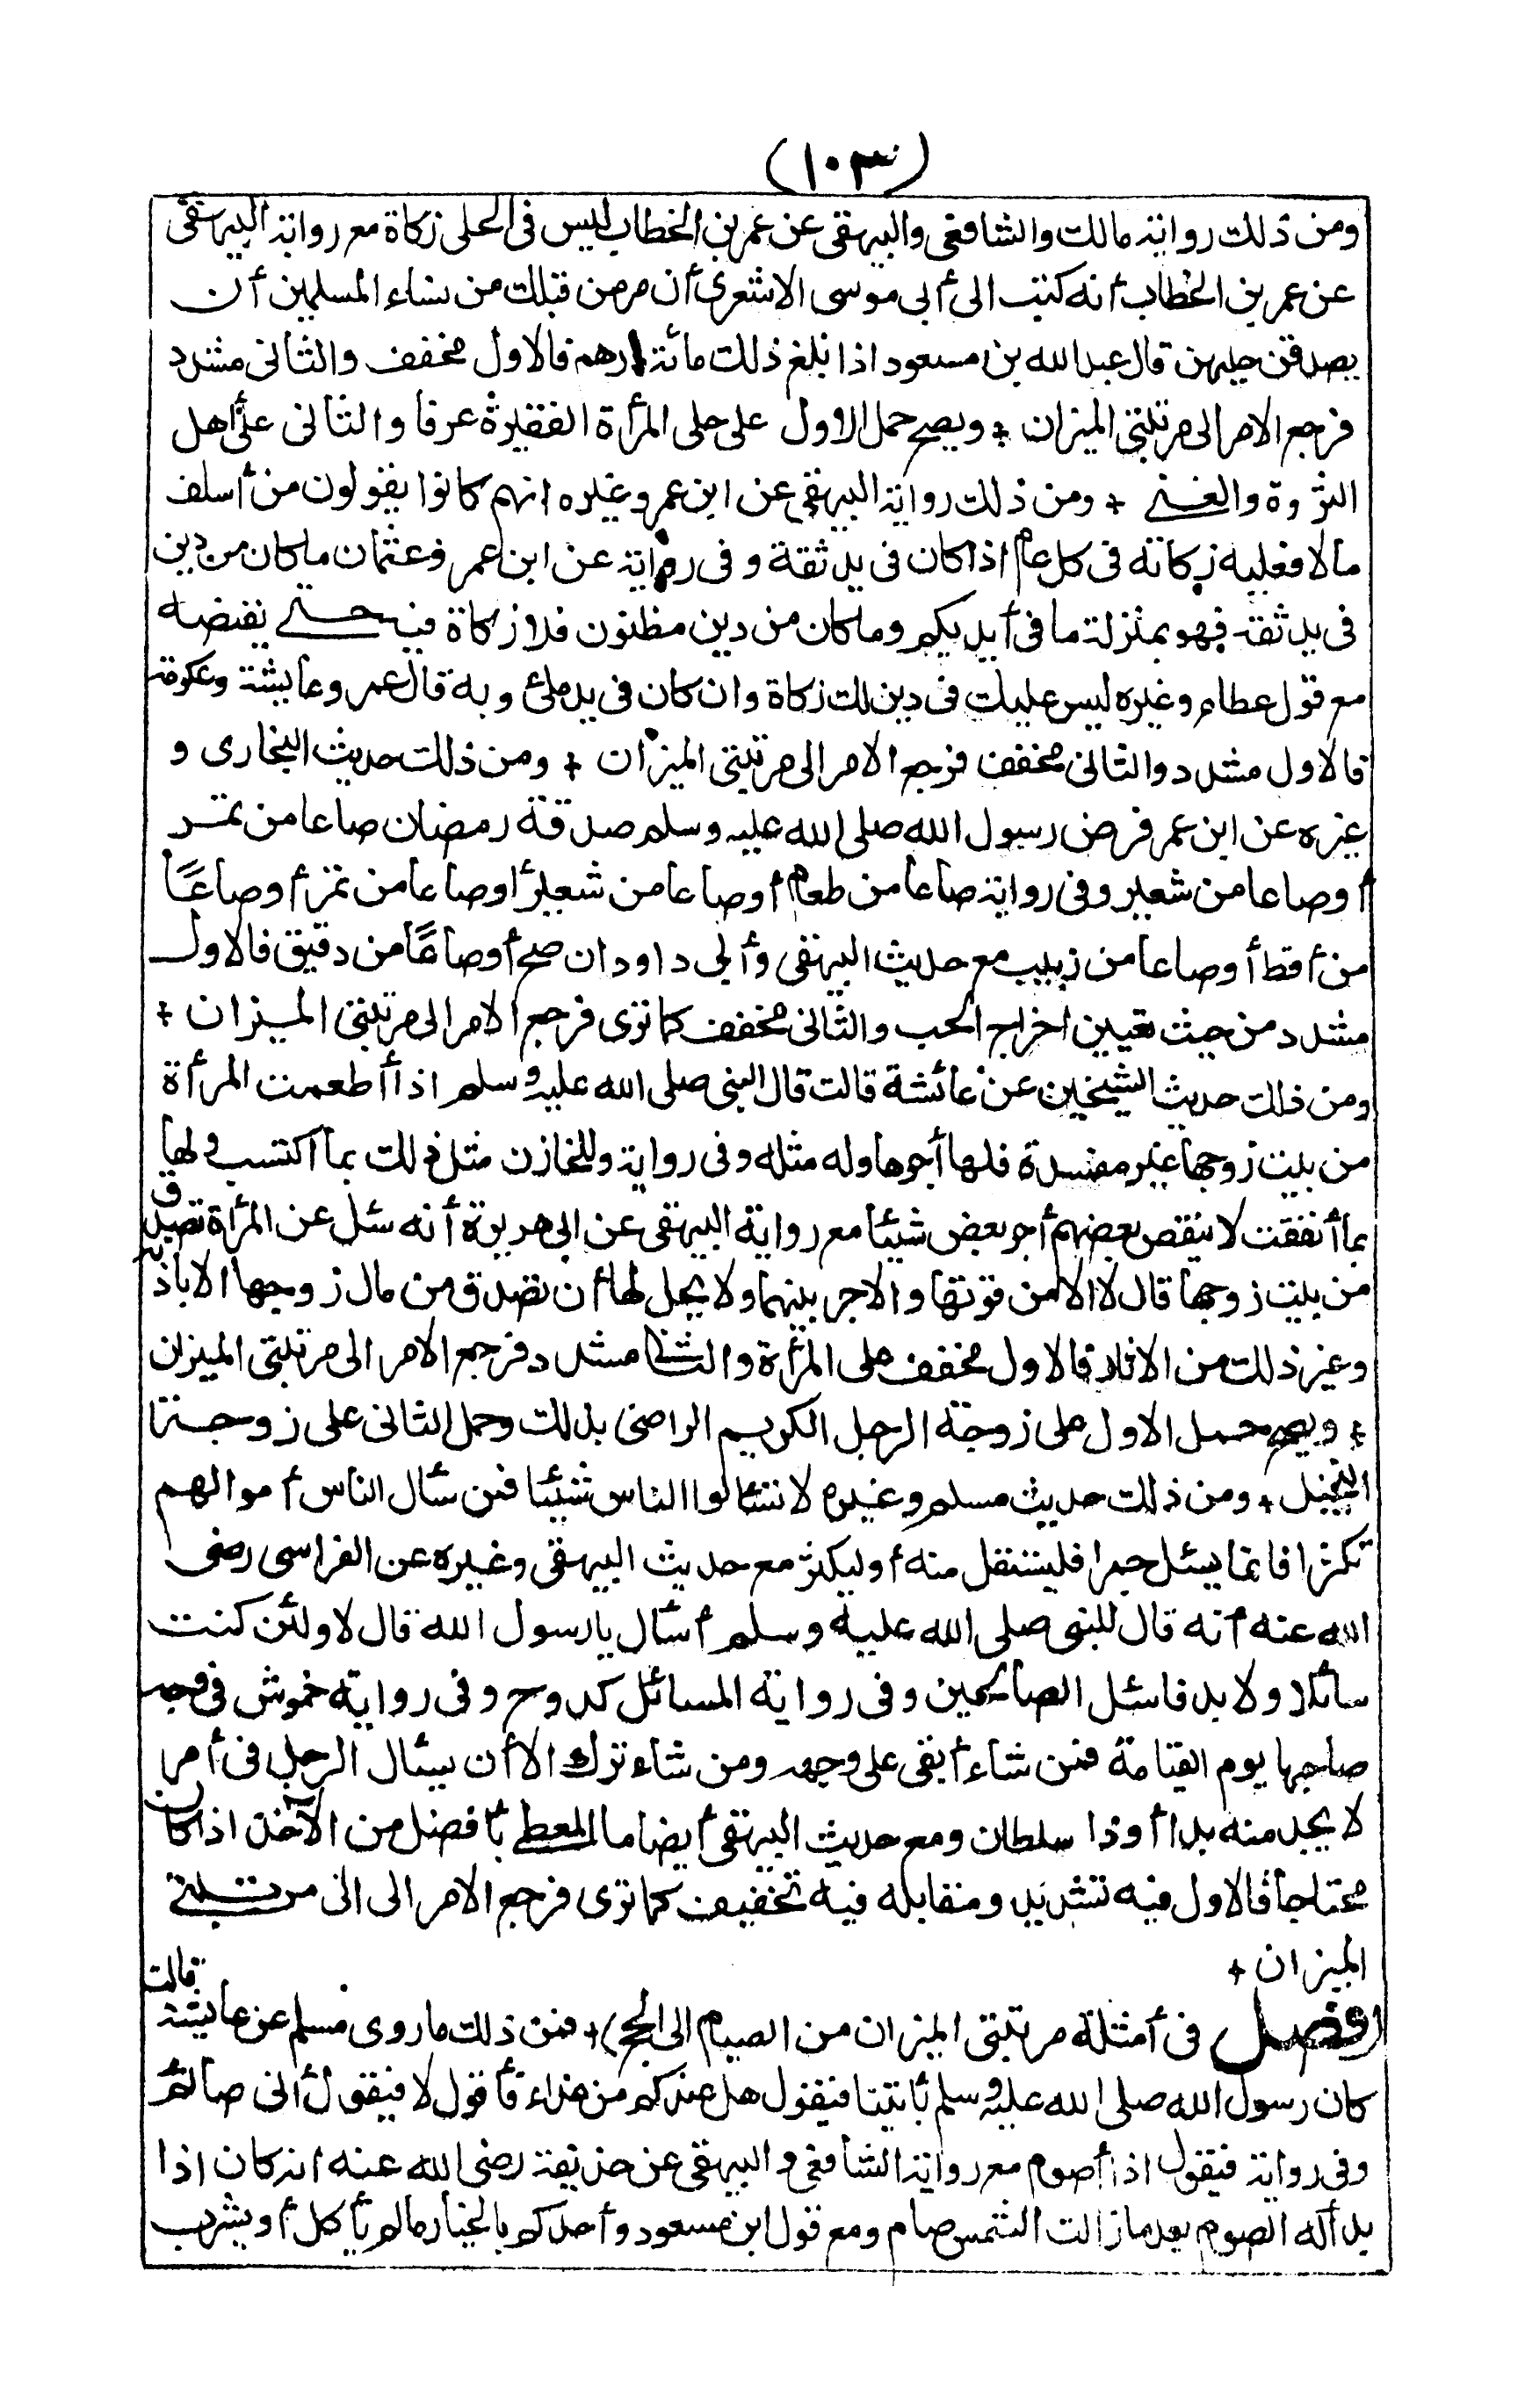 (١٠٣)
ومن ذلك رواية مالك والشافعى والبيهقى عن عمر بن الخطاب ليس فى الحلى زكاة مع رواية البيهقى
عن عمر بن الخطاب أنه كتب الى أبى موسى الاشعرى أن مر من قبلك من نساء المسلمين أن
يصدقن حليهن قال عبد الله بن مسعود اذا بلغ ذلك مائة درهم فالاول مخفف والثانى مشدد
فرجع الامر الى مرتبتى الميزان + ويصح حمل الاول على حلى المرأة الفقيرة عرفا والثانى على أهل
الثروة والغنى + ومن ذلك رواية البيهقى عن ابن عمر وغيره انهم كانوا يقولون من أسلف
مالا فعليه زكاته فى كل عام اذا كان فى يد ثقة وفى رواية عن ابن عمر وعثمان ما كان من دين
فى يد ثقة فهو بمنزلة ما فى أيديكم وما كان من دين مظنون فلا زكاة فيه حتى يقبضه
مع قول عطاء وغيره ليس عليك فى دين لك زكاة وان كان فى يد ملئ وبه قال عمر وعايشة وعكرمة
فالاول مشدد والثانى مخفف فرجع الامر الى مرتبتى الميزان + ومن ذلك حديث البخارى و
غيره عن ابن عمر فرض رسول الله صلى الله عليه وسلم صدقة رمضان صاعا من تمر
أوصاعا من شعير وفى رواية صاعا من طعام أوصاعا من شعير أوصاعا من تمر أوصاعًا
من أقط أوصاعا من زبيب مع حديث البيهقى وأبى داود ان صح أوصاعًا من دقيق فالاول
مشدد من حيث تعيين اخراج الحب والثانى مخفف كما ترى فرجع الامر الى مرتبتى الميزان +
ومن ذلك حديث الشيخين عن عائشة قالت قال النبى صلى الله عليه وسلم اذا أطعمت المرأة
من بيت زوجها غير مفسدة فلها أجرها وله مثله وفى رواية وللخازن مثل ذلك بما اكتسب ولها
بما أنفقت لا ينقص بعضهم أجر بعض شيئا مع رواية البيهقى عن ابى هريرة أنه سئل عن المرأة تصدق
من بيت زوجها قال لا الا من قوتها والاجر بينهما ولا يحل لها أن تصدق من مال زوجها الا باذنه
وغير ذلك من الاثار فالاول مخفف على المرأة والثانى مشدد فرجع الامر الى مرتبتى الميزان
+ ويصح حمل الاول على زوجة الرجل الكريم الراضى بذلك وحمل الثانى على زوجة
البخيل + ومن ذلك حديث مسلم وغيره لا تسئالوا الناس شيئا فمن سئال الناس أموالهم
تكثرا فانما يسئل جمرا فليستقل منه أوليكثر مع حديث البيهقى وغيره عن الفراسى رضى
الله عنه أنه قال للنبى صلى الله عليه وسلم أسئال يا رسول الله قال لا ولئن كنت
سائلا ولا بد فاسئل الصالحين وفى رواية المسائل كدوح وفى رواية خموش فى وجه
صاحبها يوم القيامة فمن شاء أبقى على وجهه ومن شاء ترك الا أن يسئال الرجل فى أمر
لا يجد منه بدا أوذا سلطان ومع حديث البيهقى أيضا ما المعطى بأفضل من الآخذ اذا كان
محتاجا فالاول فيه تشديد ومقابله فيه تخفيف كما ترى فرجع الامر الى الى مرتبتى
الميزان +
(فصل فى أمثلة مرتبتى الميزان من الصيام الى الحج) + فمن ذلك ما روى مسلم عن عايشة قالت
كان رسول الله صلى الله عليه وسلم يأتينا فيقول هل عندكم من غداء فأقول لا فيقول أنى صائم
وفى رواية فيقول اذا أصوم مع رواية الشافعى والبيهقى عن حذيفة رضى الله عنه انه كان اذا
بدأ له الصوم بعد ما زالت الشمس صام ومع قول ابن مسعود وأحدكم بالخيار ما لم يأكل أويشرب